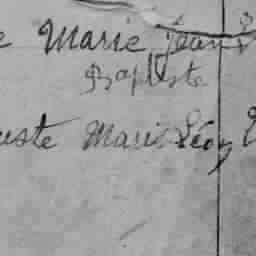 e Marie Jean
Baptiste
uste Marie Léon